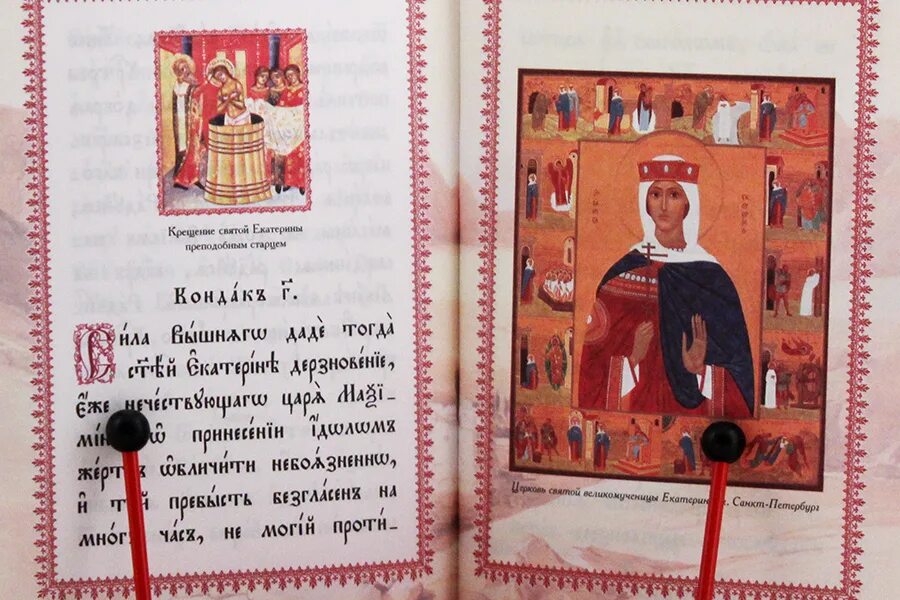 Крещение святой Екатерины
преподобным старцем
Конда́къ г҃.
Си́ла Вы́шнягѡ дадѐ тогда̀
ст҃ѣ́й Єкатері́нѣ дерзнове́нїе,
є҆́же нече́ствующагѡ царѧ̀ Маѯі-
ѡ҆ принесе́нїи і҆́дѡлѡмъ
ѡ҆бличи́ти небоѧ́зненнѡ,
и҆ то́й пребы́сть безгла́сенъ на
ча́съ, не могі́й проти́-
Церковь святой великомученицы Екатерины, г. Санкт-Петербург